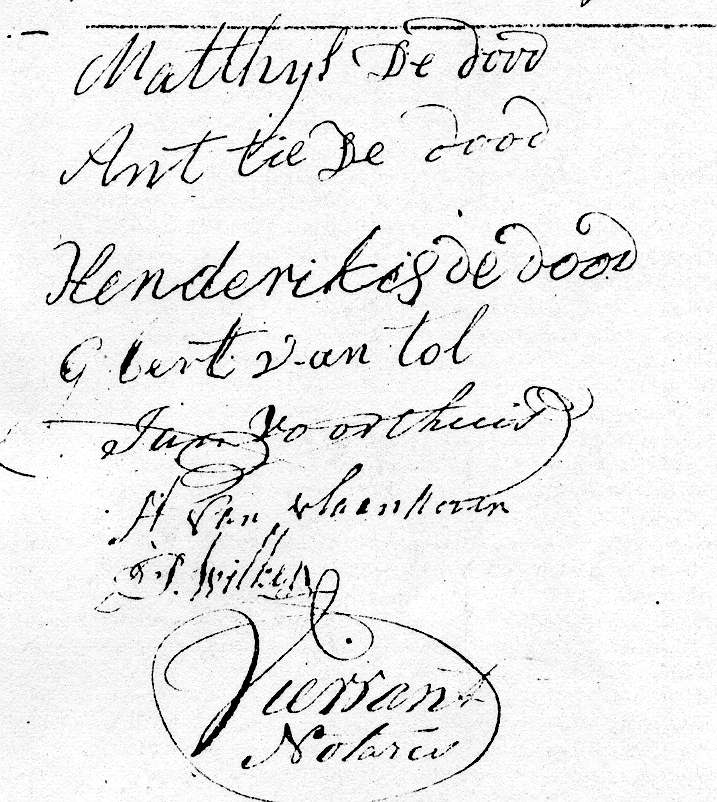 Matthys De dood
Anttie De dood
Henderikis de dood
Gbert van tol
Jan Voorthuis
H van vlaanderen
Wilken
Viervant
Notaris